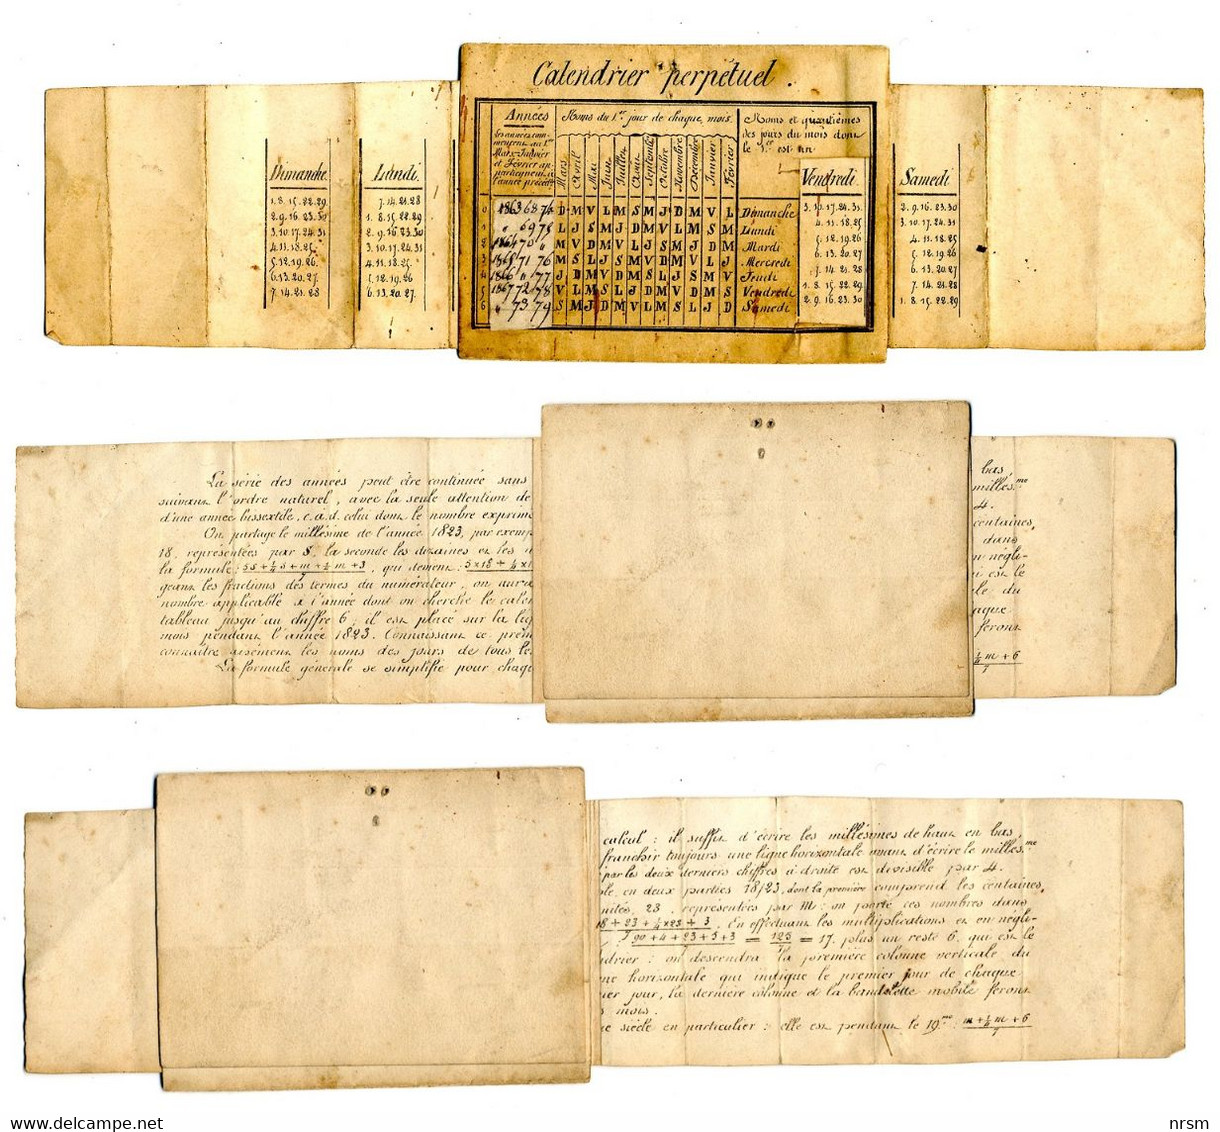 Calendrier perpétuel.
Années
Noms du 1er jour de chaque mois.
Noms et quantièmes
des jours du mois dont
le 1er est un
les années com-
mencent au 1er
Mars. Janvier
et Février ap-
partiennent à
l'année précéd.
Mars Avril Mai Juin Juillet Août Septembre Octobre Novembre Décembre Janvier Février
0 1863 68 74 D M V L M S M J D M V L Dimanche
1 " 69 75 L J S M J D M V L M S M Lundi
2 1864 70 " M V D M V L J S M J D M Mardi
3 1865 71 76 M S L J S M V D M V L J Mercredi
4 1866 " 77 J D M V D M S L J S M V Jeudi
5 1867 72 78 V L M S L J D M V D M S Vendredi
6 " 73 79 S M J D M V L M S L J D Samedi
Dimanche
1. 8. 15. 22. 29.
2. 9. 16. 23. 30.
3. 10. 17. 24. 31
4. 11. 18. 25.
5. 12. 19. 26.
6. 13. 20. 27.
7. 14. 21. 28
Lundi.
7. 14. 21. 28
1. 8. 15. 22. 29
2. 9. 16. 23. 30
3. 10. 17. 24. 31
4. 11. 18. 25.
5. 12. 19. 26
6. 13. 20. 27.
Vendredi.
3. 10. 17. 24. 31.
4. 11. 18. 25.
5. 12. 19. 26
6. 13. 20. 27.
7. 14. 21. 28
1. 8. 15. 22. 29.
2. 9. 16. 23. 30
Samedi
2. 9. 16. 23. 30
3. 10. 17. 24. 31.
4. 11. 18. 25
5. 12. 19. 26.
6. 13. 20. 27.
7. 14. 21. 28
1. 8. 15. 22. 29
La série des années peut être continuée sans
suivant l'ordre naturel, avec la seule attention de
d'une année bissextile, c.a.d. celui dont le nombre exprim
On partage le millésime de l'année 1823, par exemp
18, représentées par S, la seconde les dizaines et les u
la formule : 5S + ¼ S + m + ¼ m + 3 / 7, qui devient : 5×18 + ¼ × 1
geant les fractions des termes du numérateur, on aura
nombre applicable à l'année dont on cherche le calen
tableau jusqu'au chiffre 6, il est placé sur la lig
mois pendant l'année 1823. Connaissant ce prem
connaître aisément les noms des jours de tous le
La formule générale se simplifie pour chaqu
bas,
millés.me
4.
centaines,
dans
n négli-
i est le
le du
aque
feront
¼ m + 6
7
calcul : il suffit d'écrire les millésimes de haut en bas,
franchir toujours une ligne horizontale avant d'écrire le millés.me
par les deux derniers chiffres à droite est divisible par 4.
ple, en deux parties 18/23, dont la première comprend les centaines,
nités, 23, représentées par M : on porte ces nombres dans
18 + 23 + ¼ × 23 + 3 / 7. En effectuant les multiplications et en négli-
90 + 4 + 23 + 5 + 3 / 7 = 125 / 7 = 17, plus un reste 6, qui est le
ndrier : on descendra la première colonne verticale du
ne horizontale qui indique le premier jour de chaque
ier jour, la dernière colonne et la bandelette mobile feront
s mois.
ue siècle en particulier : elle est pendant le 19.me : m + ¼ m + 6 / 7
nrsm
delcampe.net